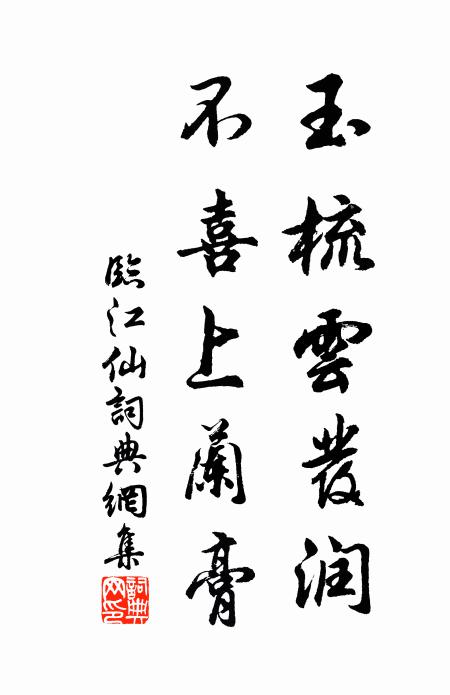 玉梳雲發润
不喜上蘭膏
臨江仙詞典網集
詞典网印